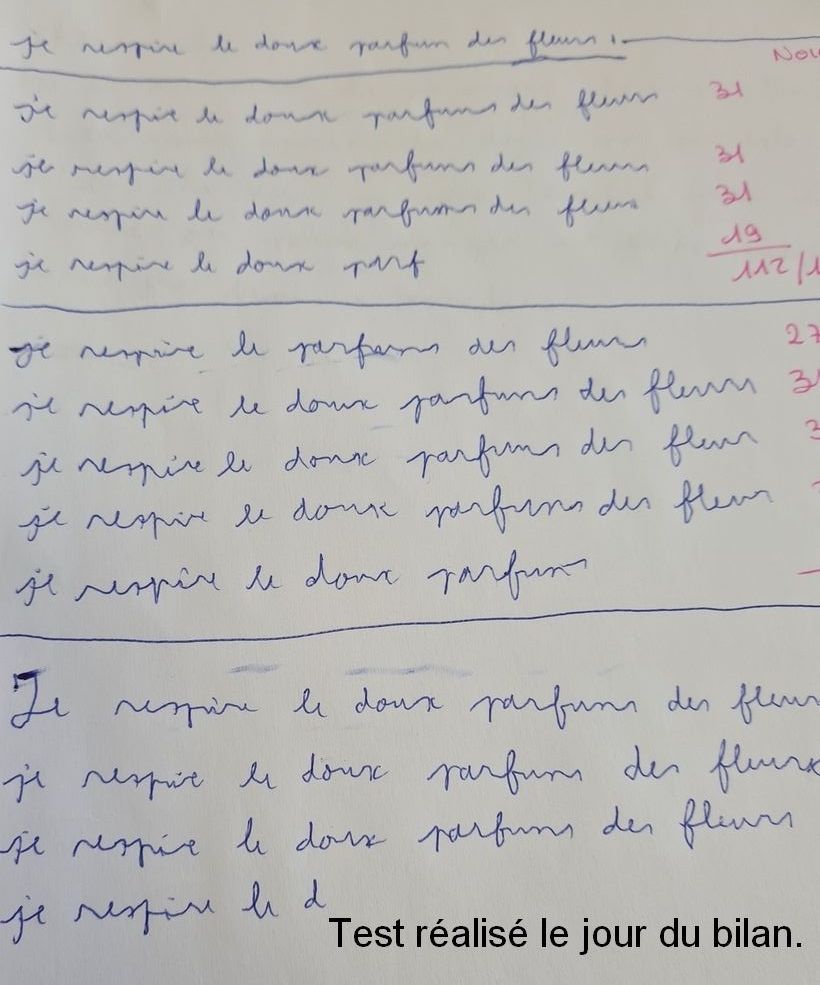 je respire le doux parfum des fleurs.
Nou
je respire le doux parfums des fleurs 31
je respire le doux parfums des fleurs 31
je respire le doux parfums des fleurs 31
je respire le doux parf 19
112/1
je respire le parfums des fleurs 27
je respire le doux parfums des fleurs 31
je respire le doux parfums des fleur 3
je respire le doux parfums des fleur
je respire le doux parfums
Je respire le doux parfums des fleur
je respire le doux parfums des fleurs
je respire le doux parfums des fleurs
je respire le d
Test réalisé le jour du bilan.